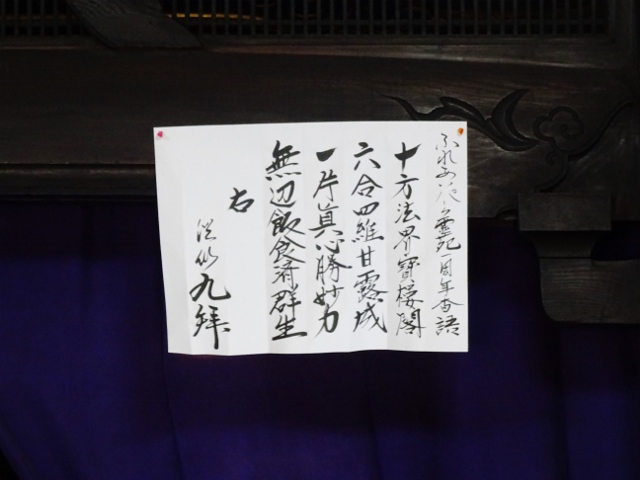 ふれあいパーク霊苑一周年香語
十方法界寶樓閣
六合四維甘露城
一片真心勝妙力
無辺飯食済群生
右
九拜